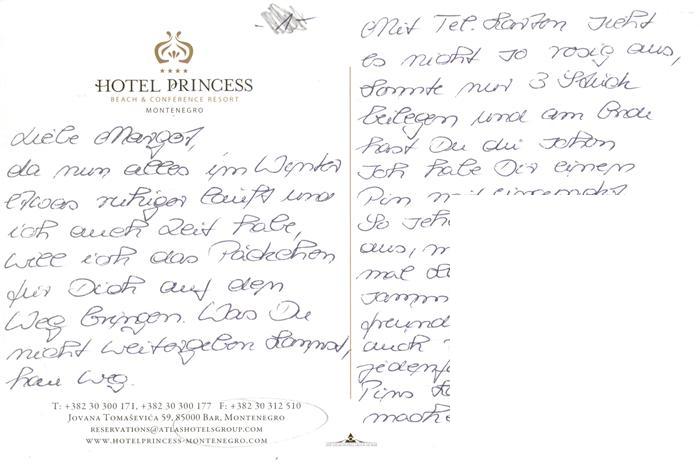 - 1 -
HOTEL PRINCESS
BEACH & CONFERENCE RESORT
MONTENEGRO
Liebe Margot,
da nun alles im Winter
etwas ruhiger läuft und
ich auch Zeit habe,
will ich das Päckchen
für Dich auf den
Weg bringen. Was Du
nicht weitergeben kannst,
hau weg.
T: +382 30 300 171, +382 30 300 177 F: +382 30 312 510
JOVANA TOMAŠEVIĆA 59, 85000 BAR, MONTENEGRO
RESERVATIONS@ATLASHOTELSGROUP.COM
WWW.HOTELPRINCESS-MONTENEGRO.COM
Mit Tel. Karten sieht
es nicht so rosig aus,
konnte nur 3 Stück
beilegen und am Ende
hast Du die schon
Ich habe Dir einen
Pin mit eingepackt
So seh
aus,
mal
samm
freund
auch
jedenf
Pins
mach